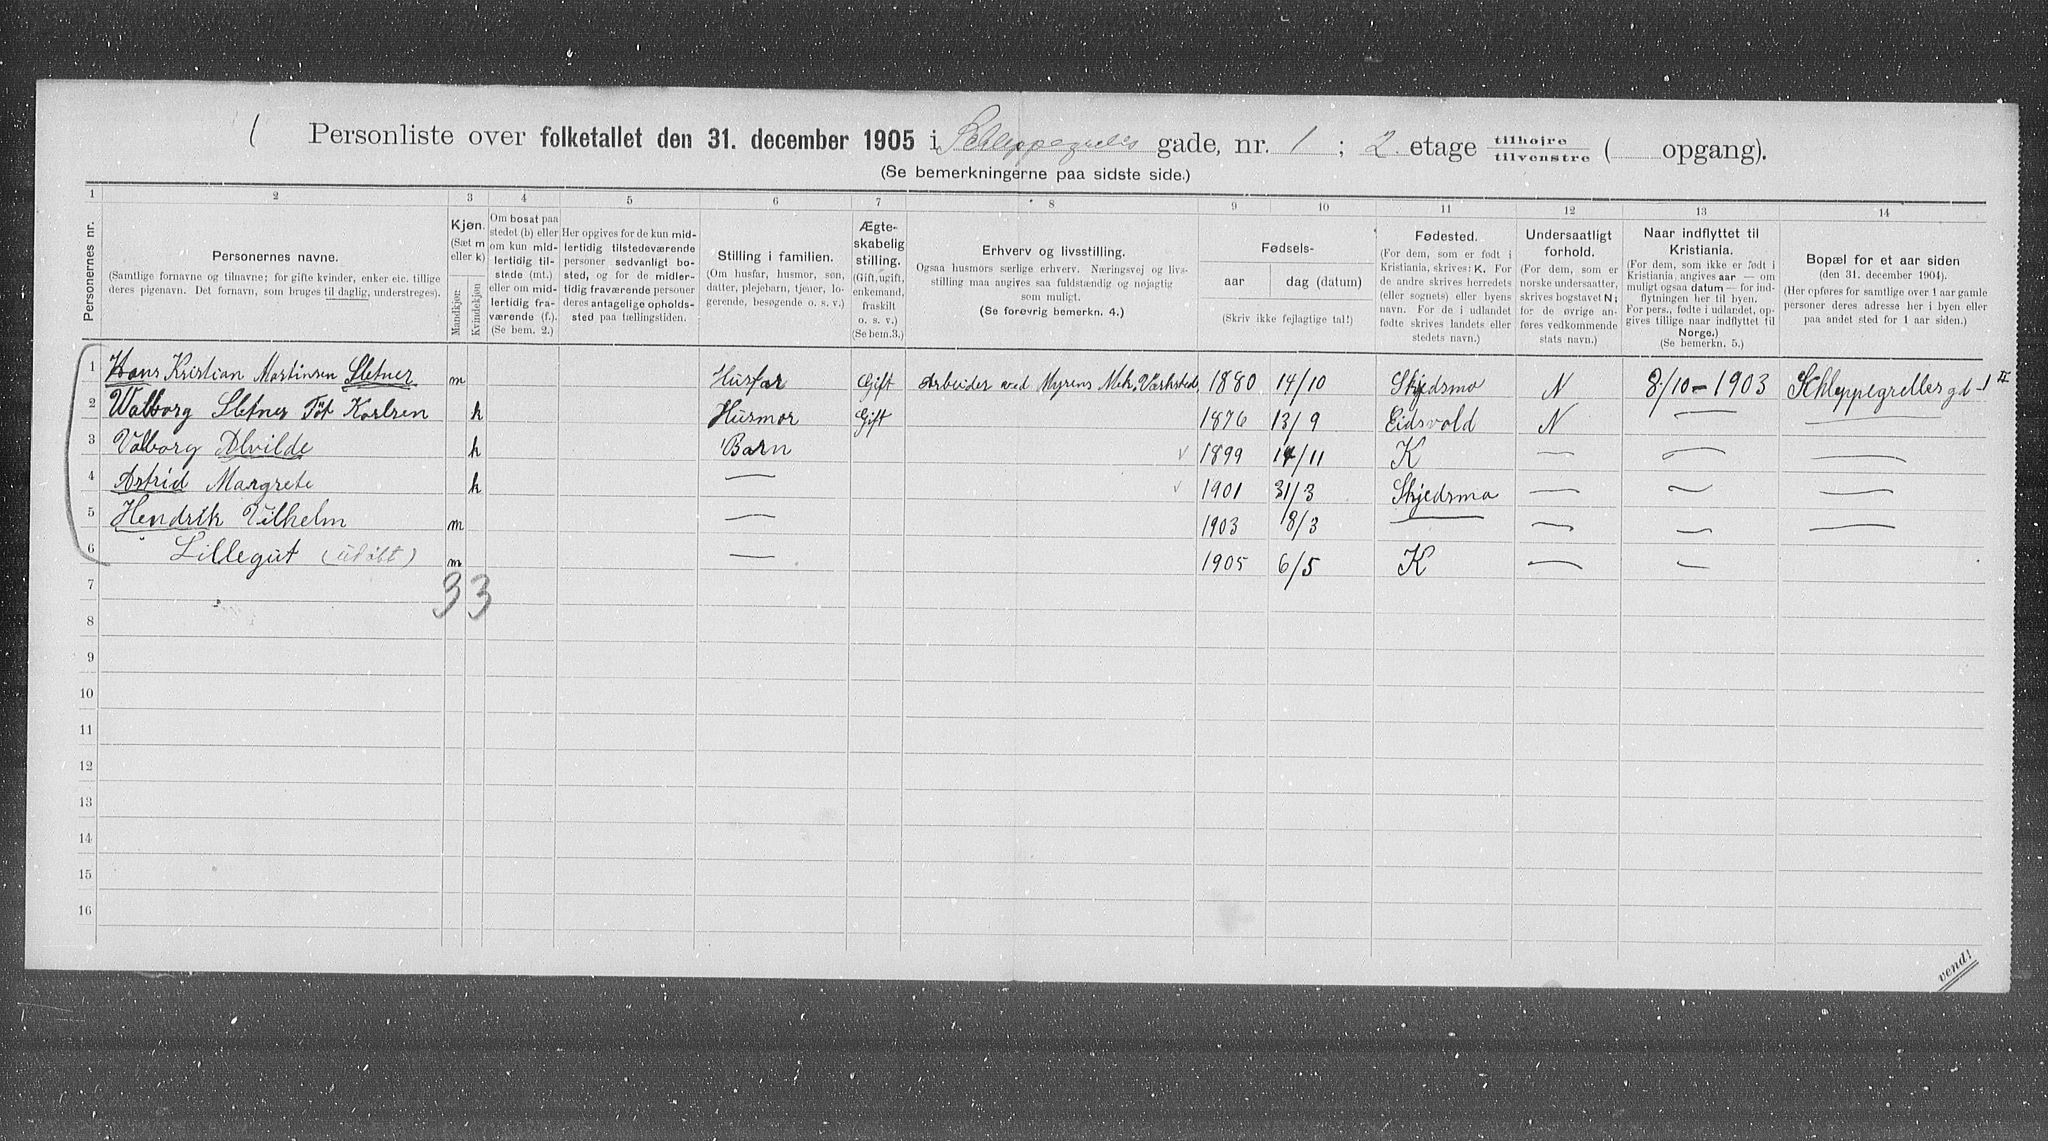 1 Personliste over folketallet den 31. december 1905 i Schleppegrells gade, nr. 1 ; 2. etage tilhøjre tilvenstre ( opgang).
(Se bemerkningerne paa sidste side.)
1 2 3 4 5 6 7 8 9 10 11 12 13 14
Personernes nr.
Personernes navne.
(Samtlige fornavne og tilnavne; for gifte kvinder, enker etc. tillige deres pigenavn. Det fornavn, som bruges til daglig, understreges).
Kjøn.
(Sæt m eller k)
Mandkjøn. Kvindekjøn
Om bosat paa stedet (b) eller om kun midlertidig tilstede (mt.) eller om midlertidig fraværende (f.). (Se bem. 2.)
Her opgives for de kun midlertidig tilstedeværende personer sedvanligt bosted, og for de midlertidig fraværende personer deres antagelige opholdssted paa tællingstiden.
Stilling i familien.
(Om husfar, husmor, søn, datter, plejebarn, tjener, logerende, besøgende o. s. v.)
Ægteskabelig stilling.
(Gift, ugift, enkemand, fraskilt o. s. v.)
(Se bem.3.)
Erhverv og livsstilling.
Ogsaa husmors særlige erhverv. Næringsvej og livsstilling maa angives saa fuldstændig og nøjagtig som muligt.
(Se forøvrig bemerkn. 4.)
Fødsels-
aar dag (datum)
(Skriv ikke fejlagtige tal!)
Fødested.
(For dem, som er født i Kristiania, skrives: K. For de andre skrives herredets (eller sognets) eller byens navn. For de i udlandet fødte skrives landets eller stedets navn.)
Undersaatligt forhold.
(For dem, som er norske undersaatter, skrives bogstavet N; for de øvrige anføres vedkommende stats navn.)
Naar indflyttet til Kristiania.
(For dem, som ikke er født i Kristiania, angives aar — om muligt ogsaa datum — for indflytningen her til byen. For pers., fødte i udlandet, opgives tillige naar indflyttet til Norge.)
(Se bemerkn. 5.)
Bopæl for et aar siden
(den 31. december 1904).
(Her opføres for samtlige over 1 aar gamle personer deres adresse her i byen eller paa andet sted for 1 aar siden.)
1 Hans Kristian Martinsen Sletner m Husfar Gift Arbeider ved Myrens Mek, Værksted, 1880 14/10 Skjedsmo N 8/10 – 1903 Schleppegrellesgd – 1 II
2 Walborg Sletner Föt Karlsen k Husmor Gift 1876 13/9 Eidsvold N — —
3 Valborg Alvilde k Barn v 1899 14/11 K — — —
4 Astrid Margrete k — v 1901 31/3 Skjedsmo — — —
5 Hendrik Vilhelm m — 1903 18/3 — — — —
6 Lillegut (udöbt) m — 1905 6/5 K — —
7 3 3
8
9
10
11
12
13
14
15
16
vend!